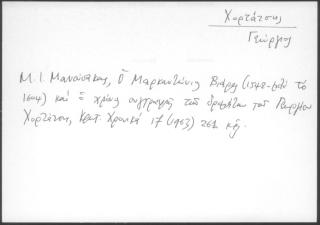 Χορτάτσης
Γεώργιος
Μ. Ι. Μανούσακας, Ὁ Μαρκαντώνιος Βιάρος (1548-μετὰ τὸ
1604) καὶ ὁ χρόνος συγγραφῆς τῶν δραμάτων τοῦ Γεωργίου
Χορτάτση, Κρητ. Χρονικά 17 (1963) 261 κἑ.